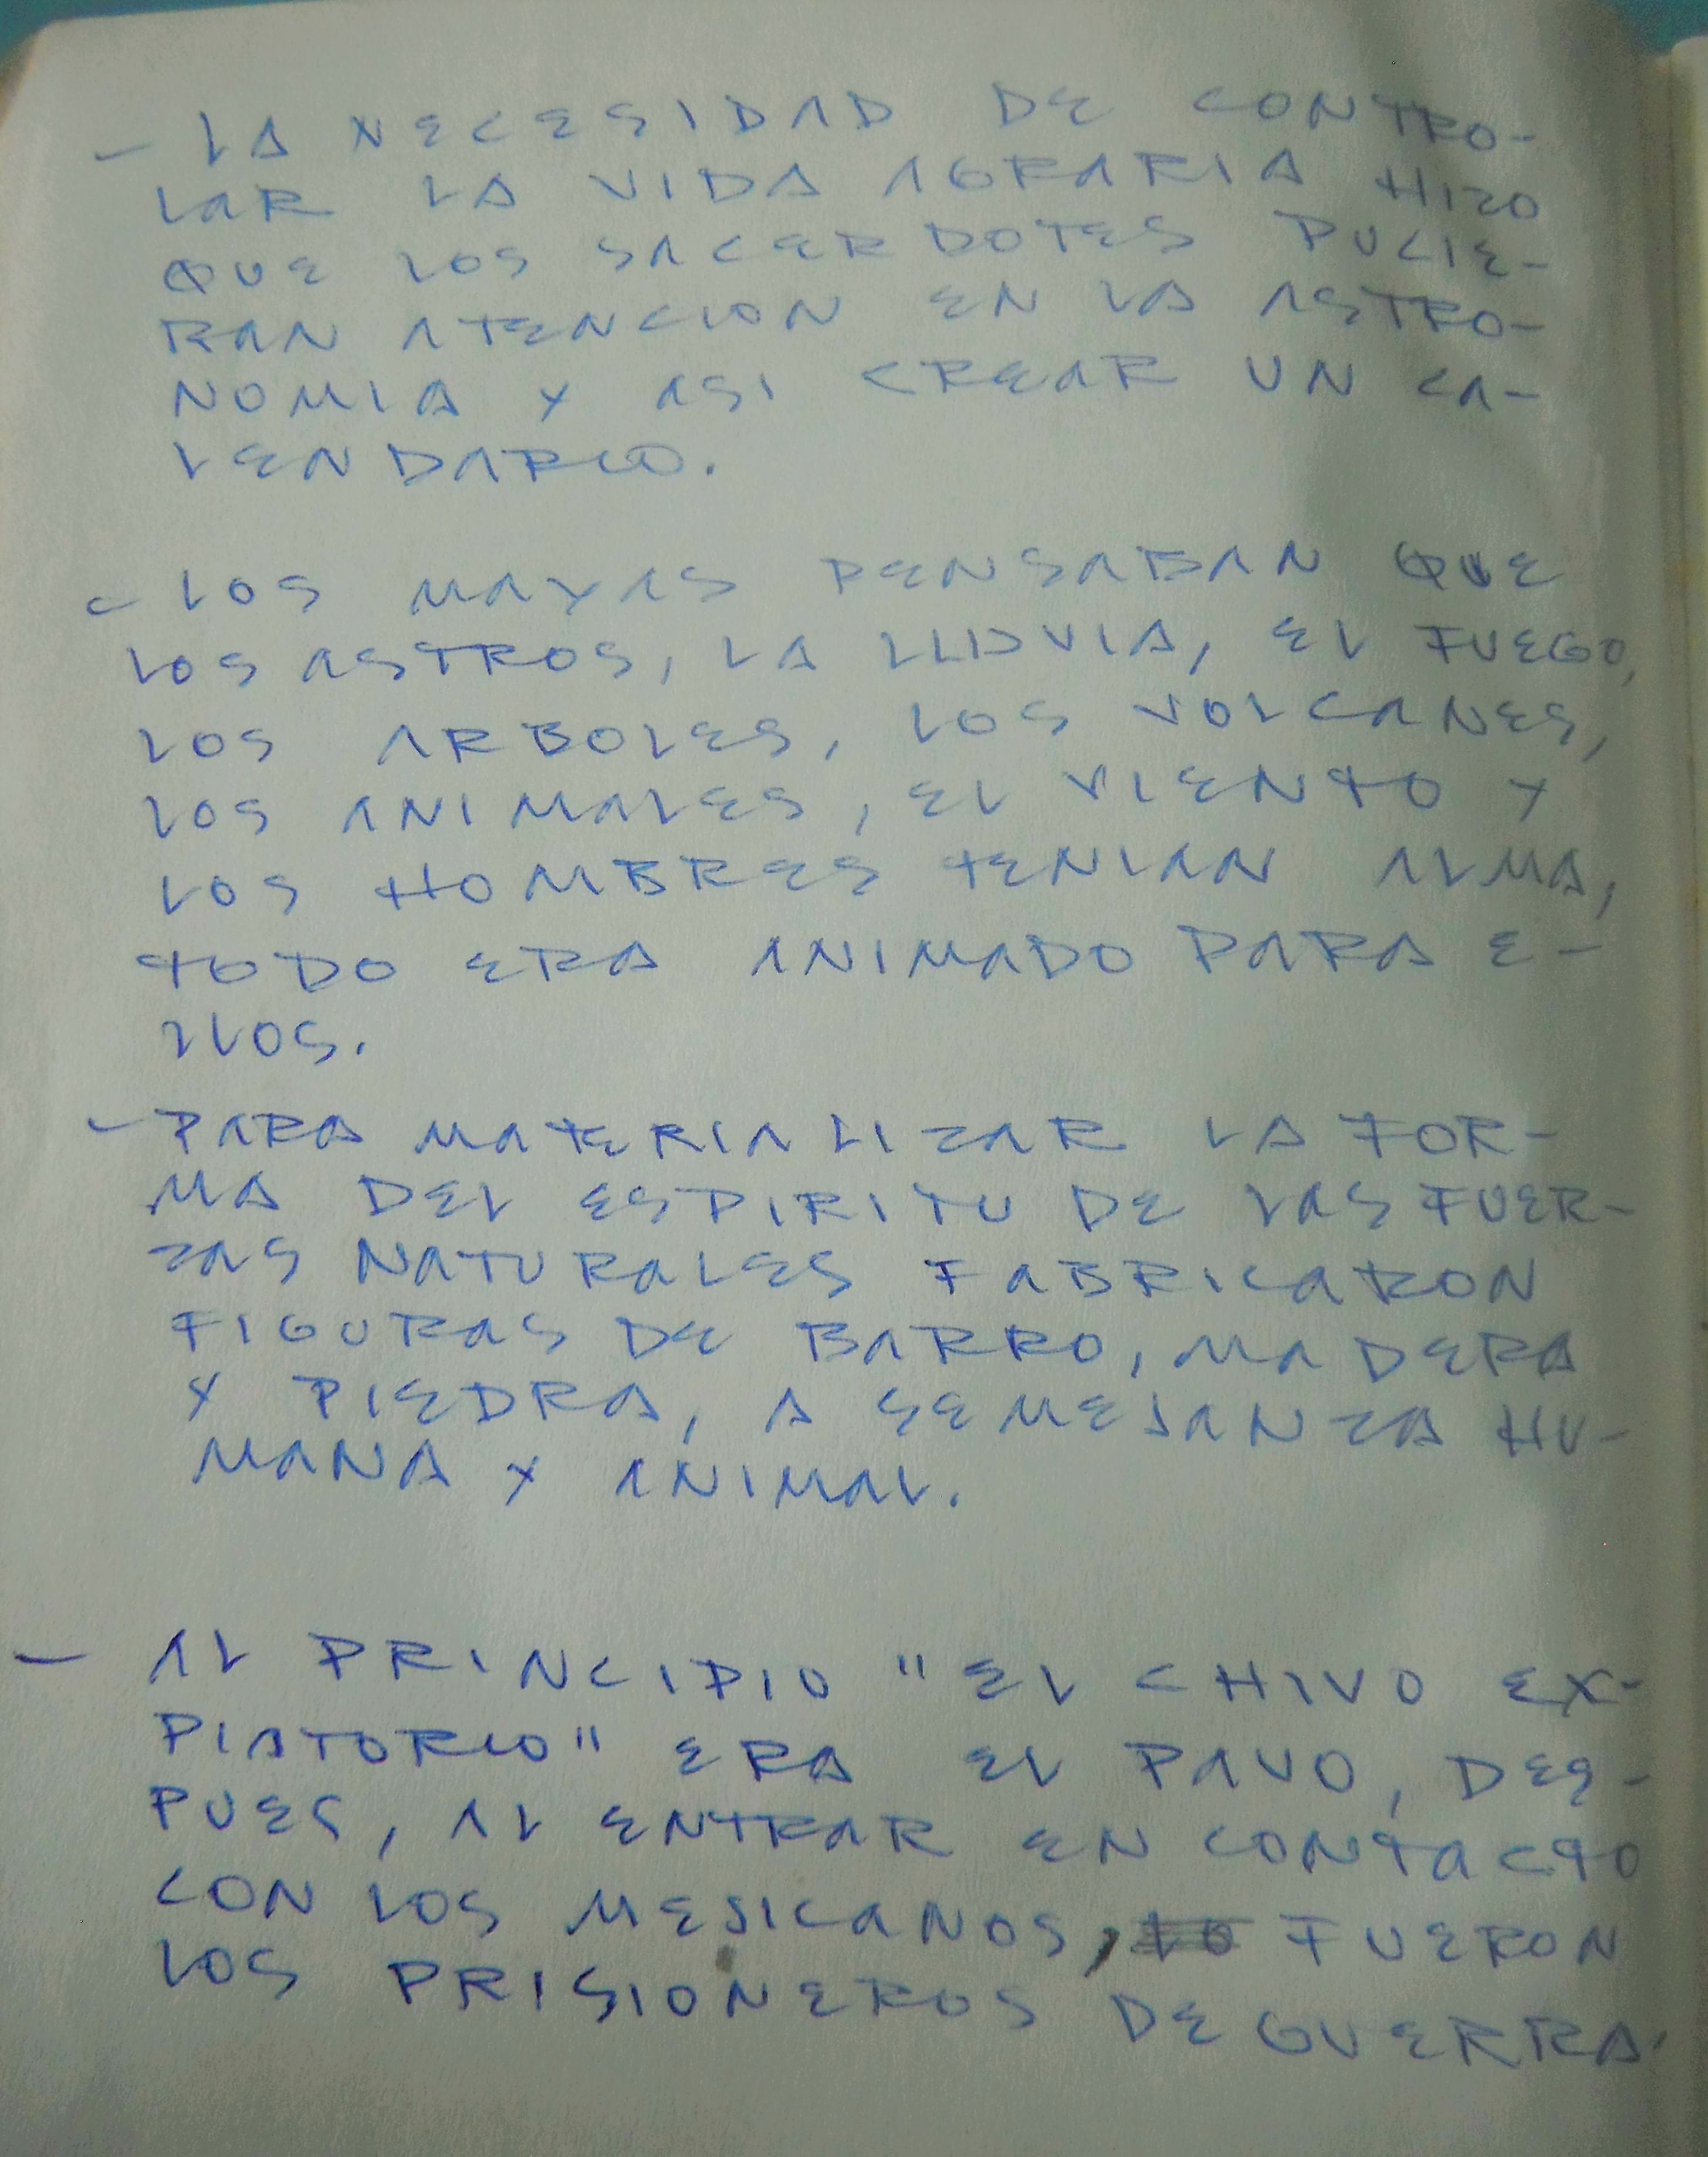 - LA NECESIDAD DE CONTRO-
LAR LA VIDA AGRARIA HIZO
QUE LOS SACERDOTES PUCIE-
RAN ATENCION EN LA ASTRO-
NOMIA Y ASI CREAR UN CA-
LENDARIO.
- LOS MAYAS PENSABAN QUE
LOS ASTROS, LA LLUVIA, EL FUEGO,
LOS ARBOLES, LOS VOLCANES,
LOS ANIMALES, EL VIENTO Y
LOS HOMBRES TENIAN ALMA,
TODO ERA ANIMADO PARA E-
LLOS.
- PARA MATERIALIZAR LA FOR-
MA DEL ESPIRITU DE LAS FUER-
ZAS NATURALES FABRICARON
FIGURAS DE BARRO, MADERA
Y PIEDRA, A SEMEJANZA HU-
MANA Y ANIMAL.
- AL PRINCIPIO "EL CHIVO EX-
PIATORIO" ERA EL PAVO, DES-
PUES, AL ENTRAR EN CONTACTO
CON LOS MESICANOS, FUERON
LOS PRISIONEROS DE GUERRA.